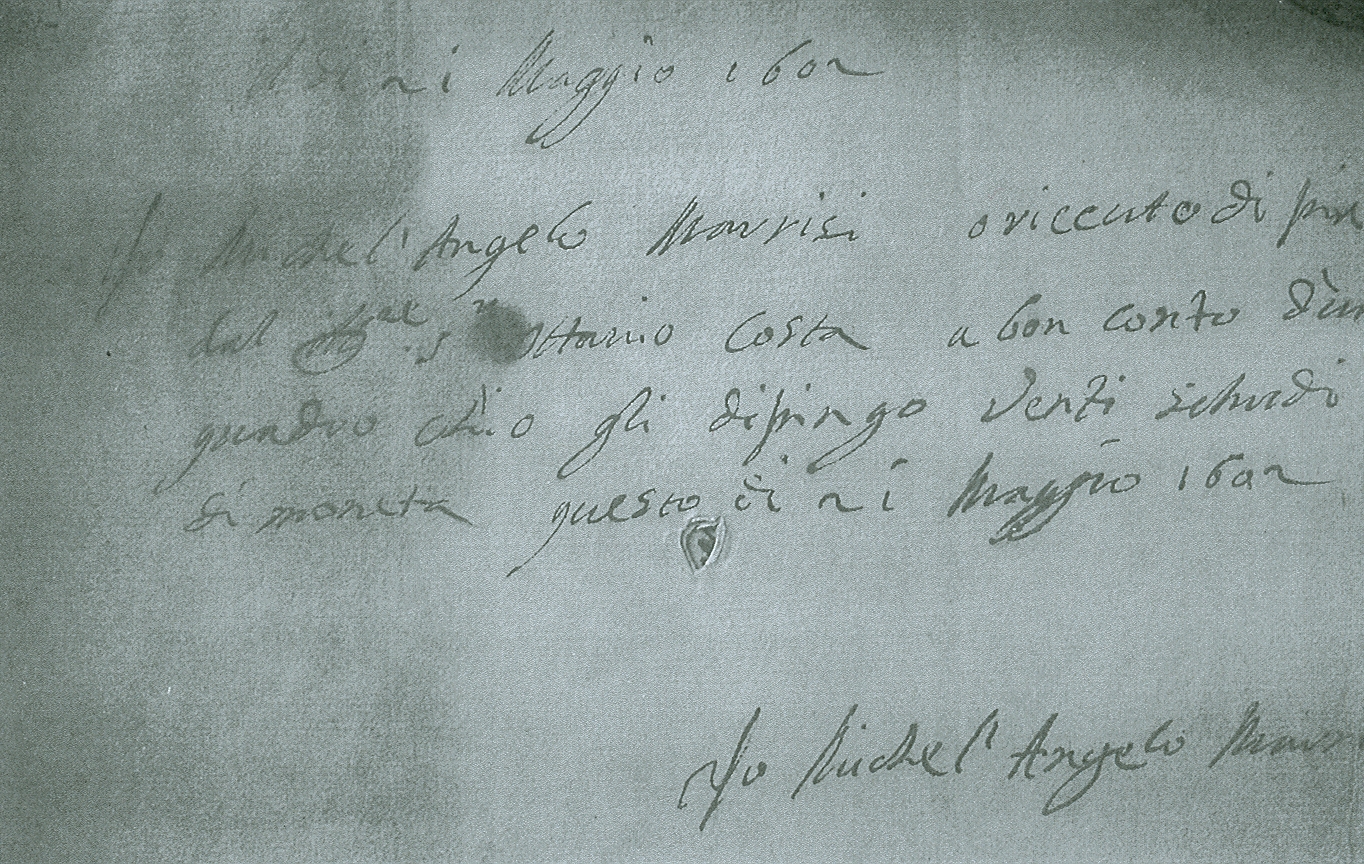 Adi 21 Maggio 1602
Io Michel'Angelo Marrisi o riceuto di più
dal Ill s Ottavio Costa a bon conto d'un
quadro ch'io gli dipingo venti schudi
di moneta questo di 21 Maggio 1602
Io Michel'Angelo Marr